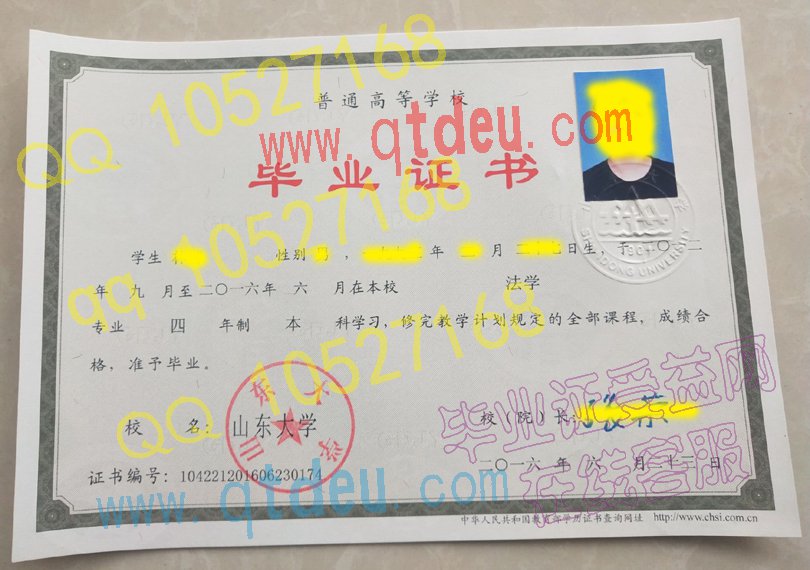 普通高等学校
www.qtdeu.com
QQ 10527168
毕业证书
学生 性别 , 年 月 日生，于二〇一二
年 九 月至二〇一六年 六 月在本校 法学
qq 10527168
专业 四 年制 本 科学习，修完教学计划规定的全部课程，成绩合
格，准予毕业。
QQ 10527168
山东大学
SHANDONG UNIVERSITY
1901
校 名：山东大学
校（院）长：
毕业证受益网
在线客服
证书编号：104221201606230174
二〇一六 年 六 月二十三日
www.qtdeu.com
中华人民共和国教育部学历证书查询网址 http://www.chsi.com.cn